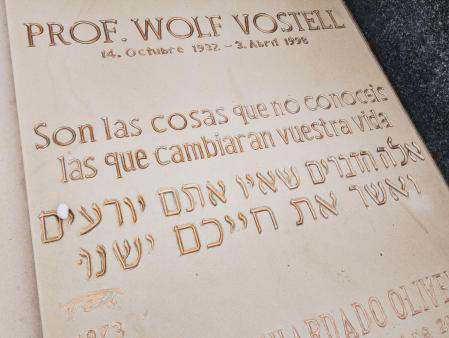 PROF. WOLF VOSTELL
14. Octubre 1932 – 3. Abril 1998
Son las cosas que no conoceis
las que cambiaran vuestra vida
אלה הדברים שאין אתם יורעים
ואשר את חייכם ישנו